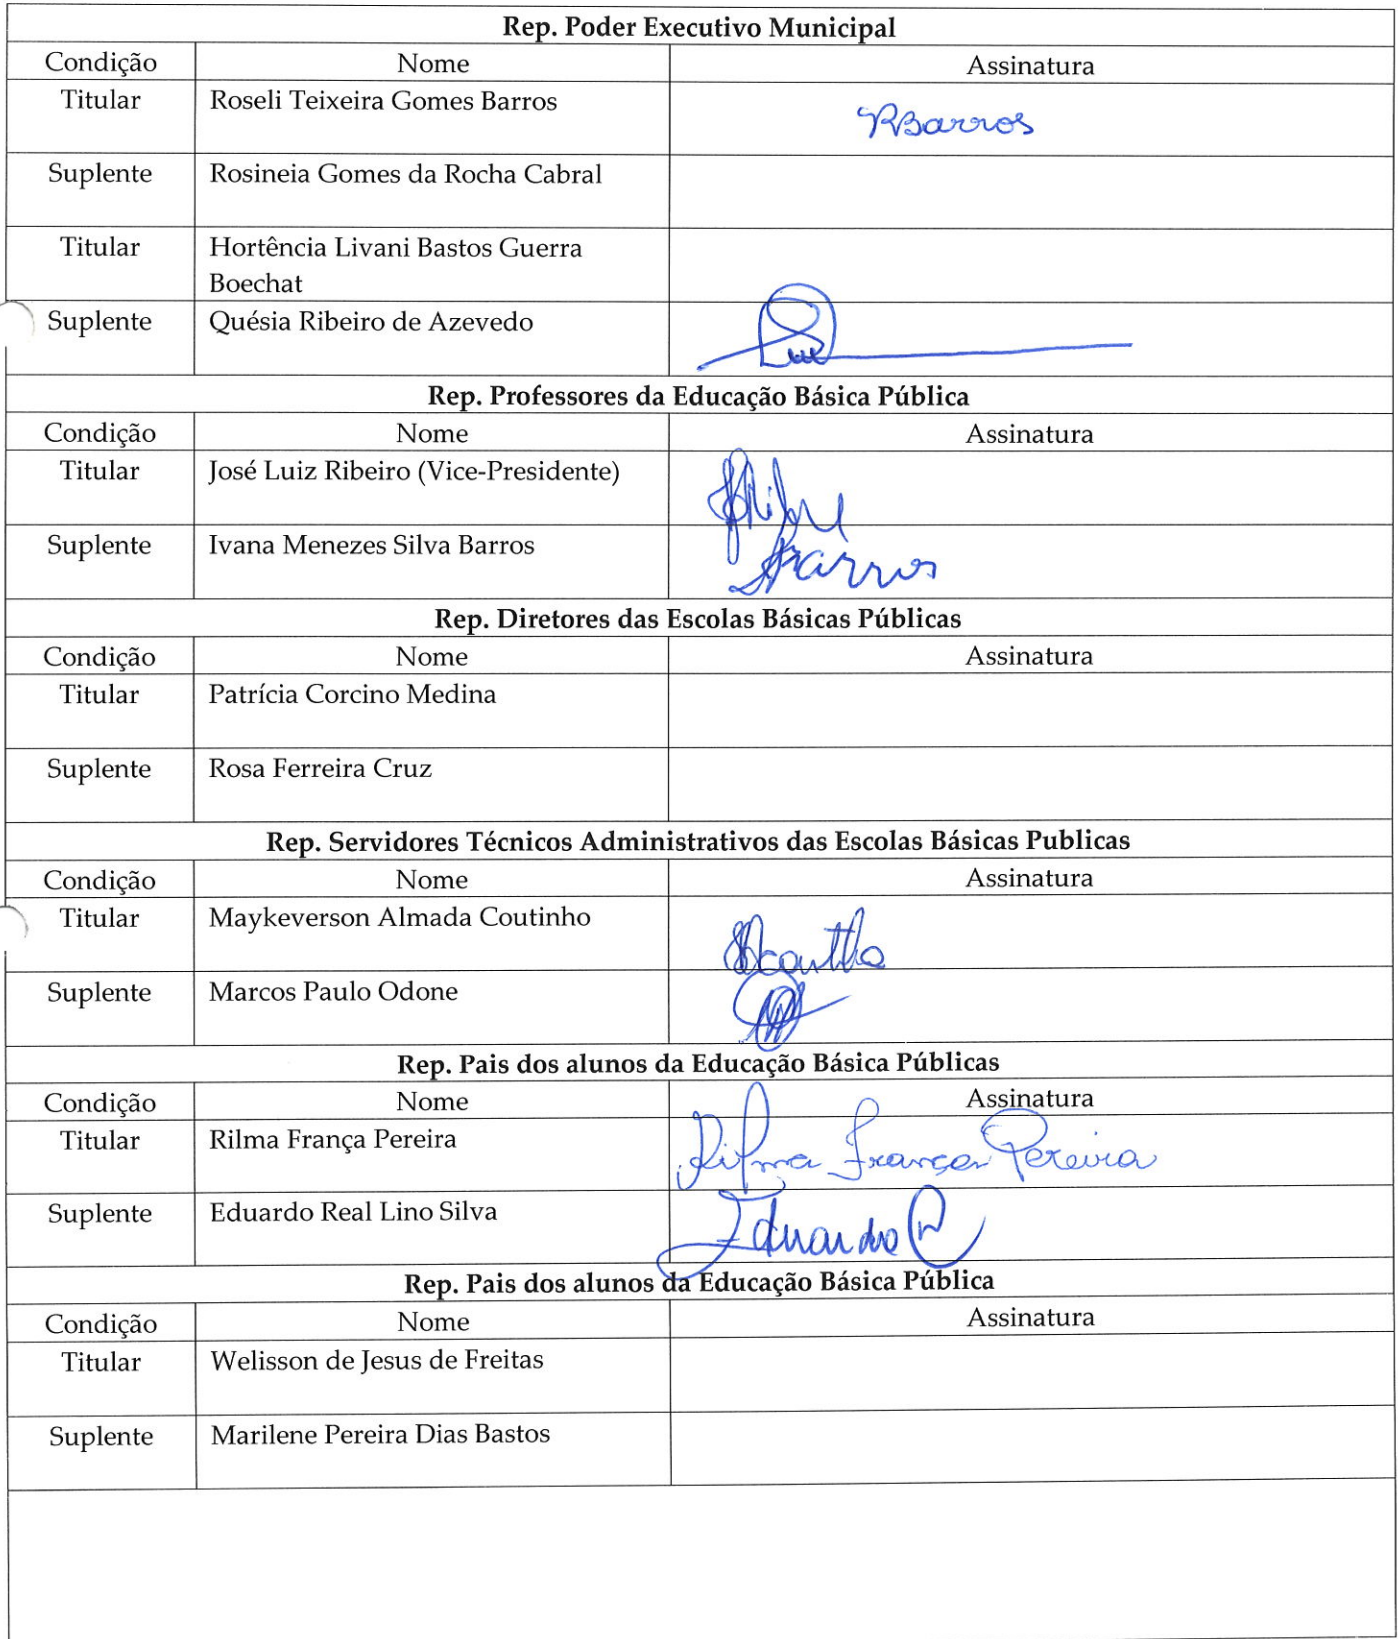 Rep. Poder Executivo Municipal
Condição Nome Assinatura
Titular Roseli Teixeira Gomes Barros RBarros
Suplente Rosineia Gomes da Rocha Cabral
Titular Hortência Livani Bastos Guerra
Boechat
Suplente Quésia Ribeiro de Azevedo
Rep. Professores da Educação Básica Pública
Condição Nome Assinatura
Titular José Luiz Ribeiro (Vice-Presidente)
Suplente Ivana Menezes Silva Barros
Rep. Diretores das Escolas Básicas Públicas
Condição Nome Assinatura
Titular Patrícia Corcino Medina
Suplente Rosa Ferreira Cruz
Rep. Servidores Técnicos Administrativos das Escolas Básicas Publicas
Condição Nome Assinatura
Titular Maykeverson Almada Coutinho
Suplente Marcos Paulo Odone
Rep. Pais dos alunos da Educação Básica Públicas
Condição Nome Assinatura
Titular Rilma França Pereira Rilma França Pereira
Suplente Eduardo Real Lino Silva Eduardo R
Rep. Pais dos alunos da Educação Básica Pública
Condição Nome Assinatura
Titular Welisson de Jesus de Freitas
Suplente Marilene Pereira Dias Bastos